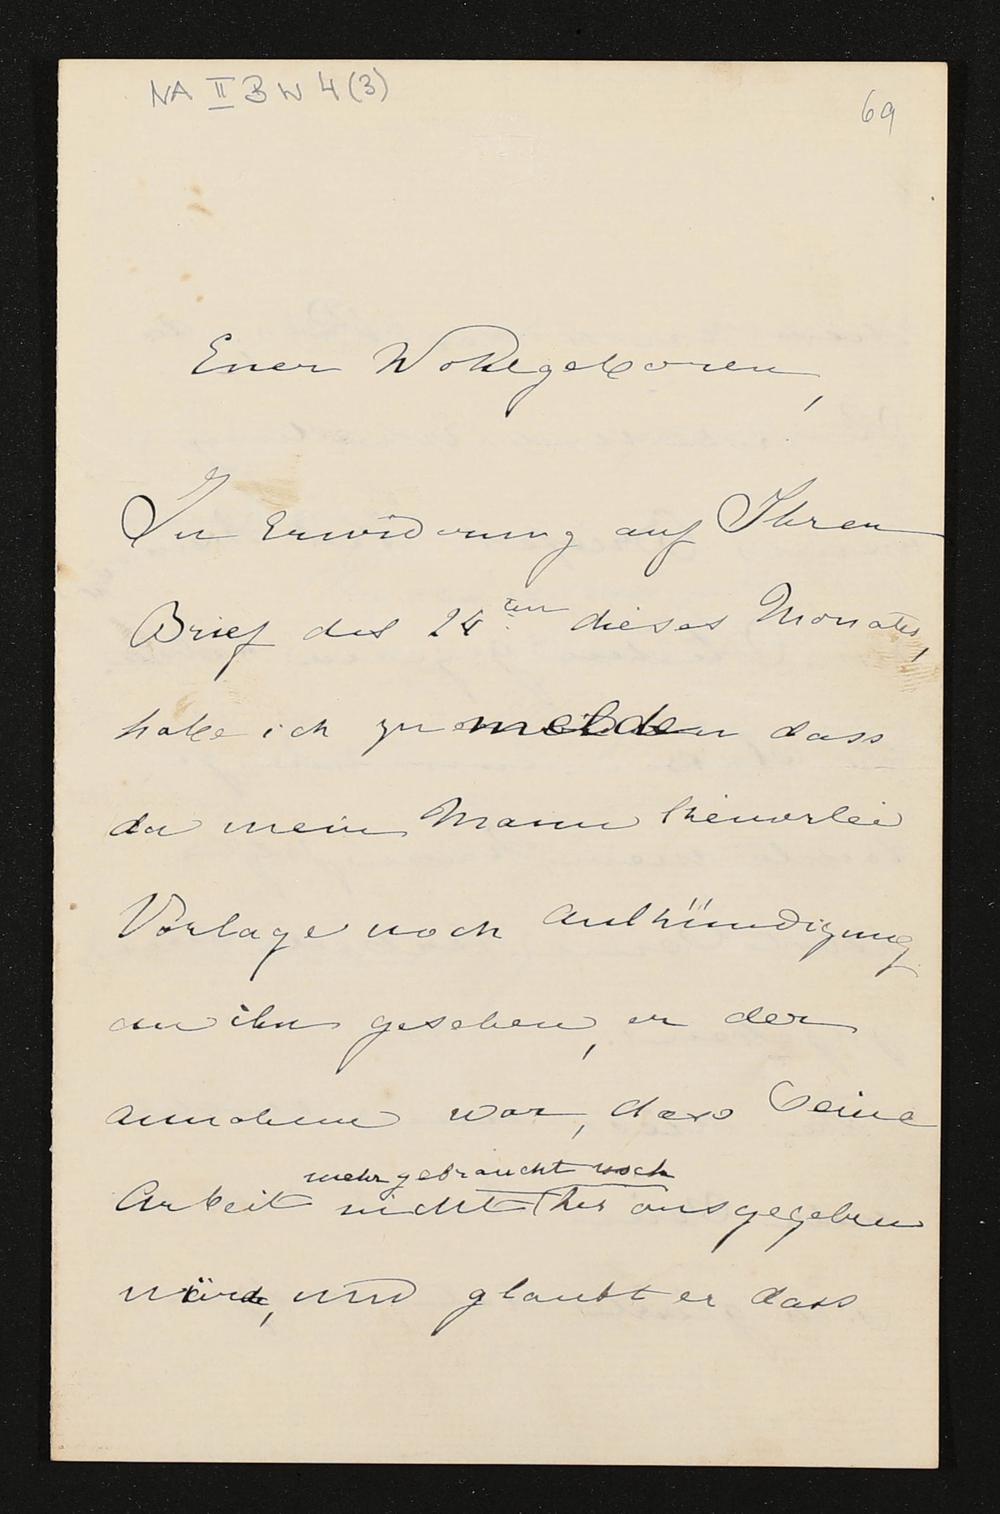 NA II B W 4(3)
69
Euer Wohlgeboren,
In Erwiderung auf Ihren
Brief des 24ten dieses Monats,
habe ich zu melden dass
da mein Mann keinerlei
Vorlage noch Ankündigung
an ihn gesehen, er der
annahme war, dass Seine
mehr gebraucht noch
Arbeit nicht her ausgegeben
würde, und glaubt er dass